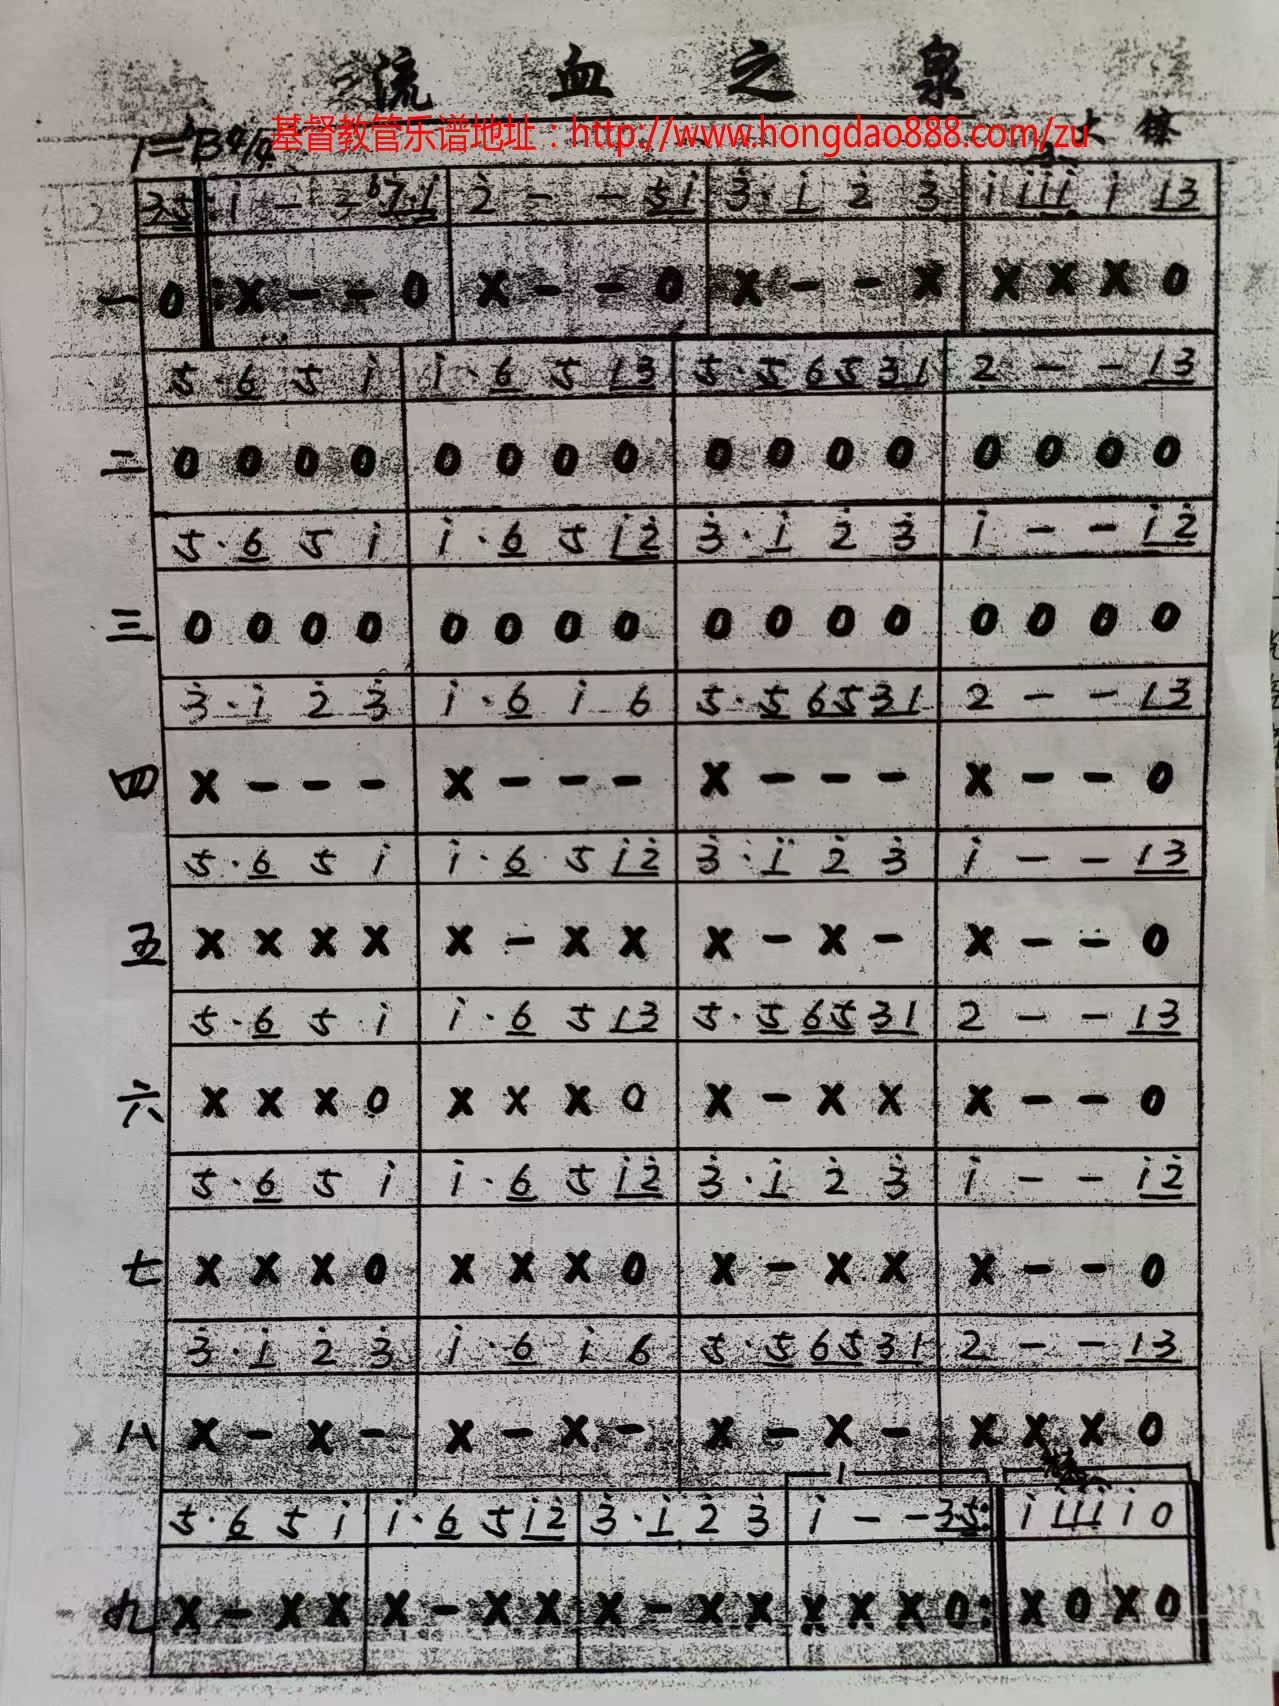 流 血 之 泉
1=♭B4/4
基督教管乐谱地址：http://www.hongdao888.com/zu
大 镲
35 ‖: i - - ♭7·i | 2̇ - - 5i | 3̇· i 2̇ 3̇ | i iii i 13
一 0 ‖: X - - 0 | X - - 0 | X - - X | X X X 0
5·6 5 i | i·6 5 13 | 5·5 65 31 | 2 - - 13
二 0 0 0 0 | 0 0 0 0 | 0 0 0 0 | 0 0 0 0
5·6 5 i | i·6 5 i2̇ | 3̇·i 2̇ 3̇ | i - - i2̇
三 0 0 0 0 | 0 0 0 0 | 0 0 0 0 | 0 0 0 0
3̇·i 2̇ 3̇ | i·6 i 6 | 5·5 65 31 | 2 - - 13
四 X - - - | X - - - | X - - - | X - - 0
5·6 5 i | i·6 5 i2̇ | 3̇·i 2̇ 3̇ | i - - 13
五 X X X X | X - X X | X - X - | X - - 0
5·6 5 i | i·6 5 13 | 5·5 65 31 | 2 - - 13
六 X X X 0 | X X X 0 | X - X X | X - - 0
5·6 5 i | i·6 5 i2̇ | 3̇·i 2̇ 3̇ | i - - i2̇
七 X X X 0 | X X X 0 | X - X X | X - - 0
3̇·i 2̇ 3̇ | i·6 i 6 | 5·5 65 31 | 2 - - 13
八 X - X - | X - X - | X - X - | X X X 0
1
5·6 5 i | i·6 5 i2̇ | 3̇·i 2̇ 3̇ | i - - 35 :‖ i iii i 0
九 X - X X | X - X X | X - X X | X X X 0 :‖ X 0 X 0